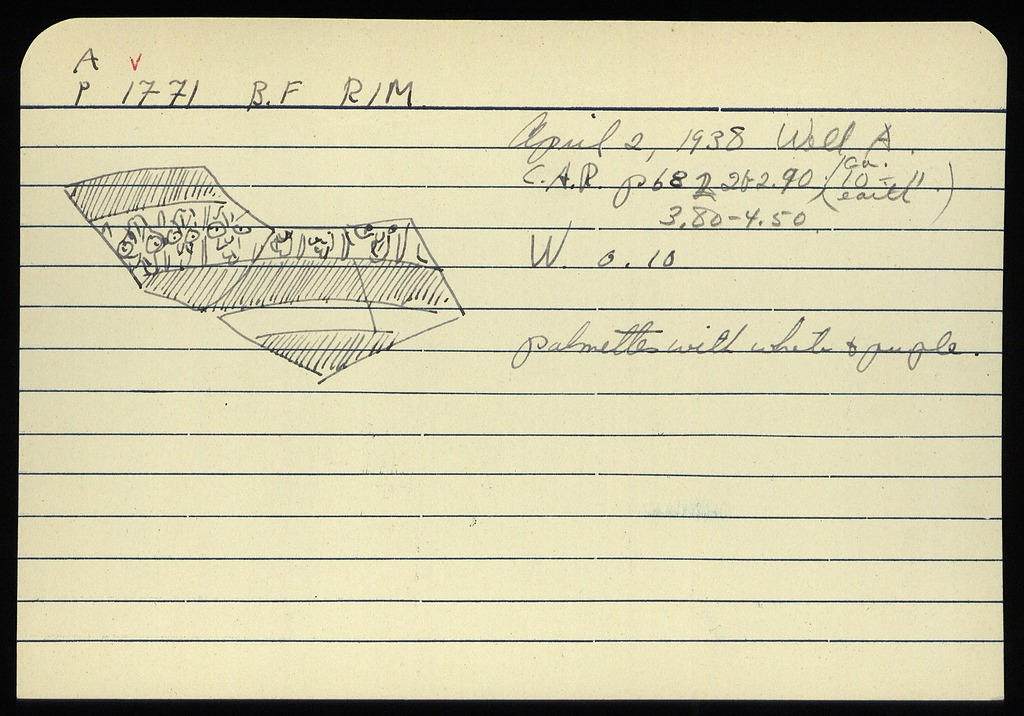 A v
P 1771 B.F RIM
April 2, 1938 Well A.
C.A.R. p68 2.90 (ca. 10
earth)
3.80-4.50
W. 0.10
palmettes with white & purple.